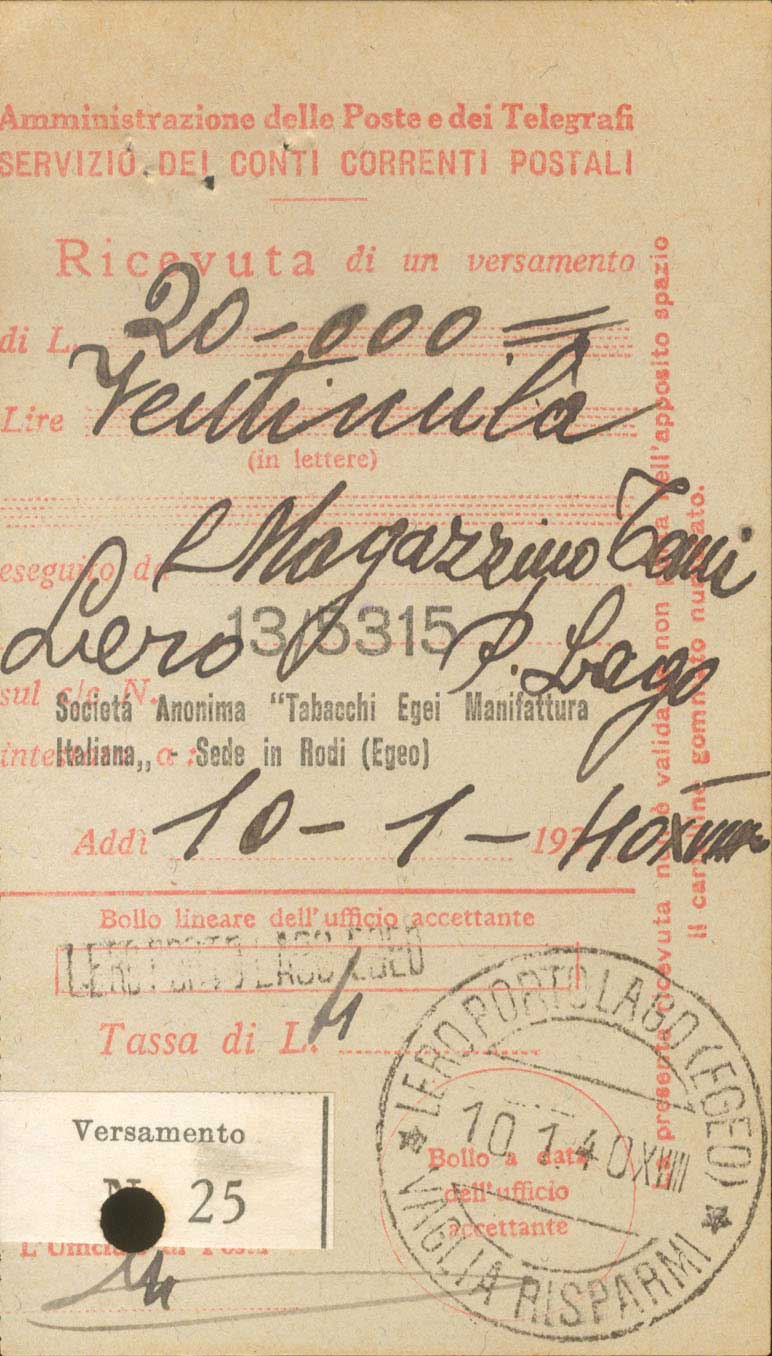 Amministrazione delle Poste e dei Telegrafi
SERVIZIO DEI CONTI CORRENTI POSTALI
Ricevuta di un versamento
di L. 20-000=
Lire Ventimila
(in lettere)
eseguito da Magazzino Tami
Lero P. Lago
sul c/c N. 13/5315
Società Anonima "Tabacchi Egei Manifattura
intestato a: Italiana„ - Sede in Rodi (Egeo)
Addì 10-1-1940 XVIII
Bollo lineare dell'ufficio accettante
LERO PORTO LAGO EGEO
Tassa di L. 4
Versamento
N. 25
L'Ufficiale di Posta
Bollo a data
dell'ufficio
accettante
LERO PORTO LAGO (EGEO)
10.1.40 XVIII
VAGLIA RISPARMI
La presente ricevuta non è valida se non porta nell'apposito spazio
il cartellino gommato numerato.